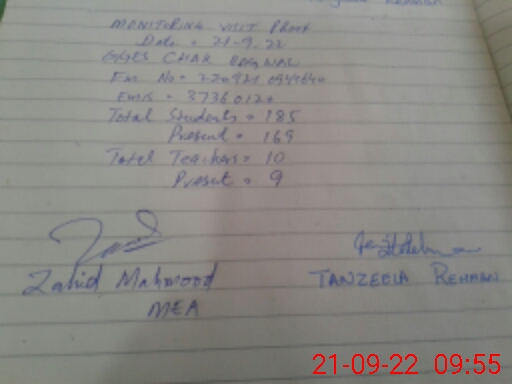 Rehman
MONITORING VISIT PROOF
Date = 21-9-22
GGES CHAK
Em No = 
Emis = 3736012
Total Students = 185
Present = 169
Total Teachers = 10
Present = 9
Zahid Mahmood
MEA
TANZEELA REHMAN
21-09-22 09:55